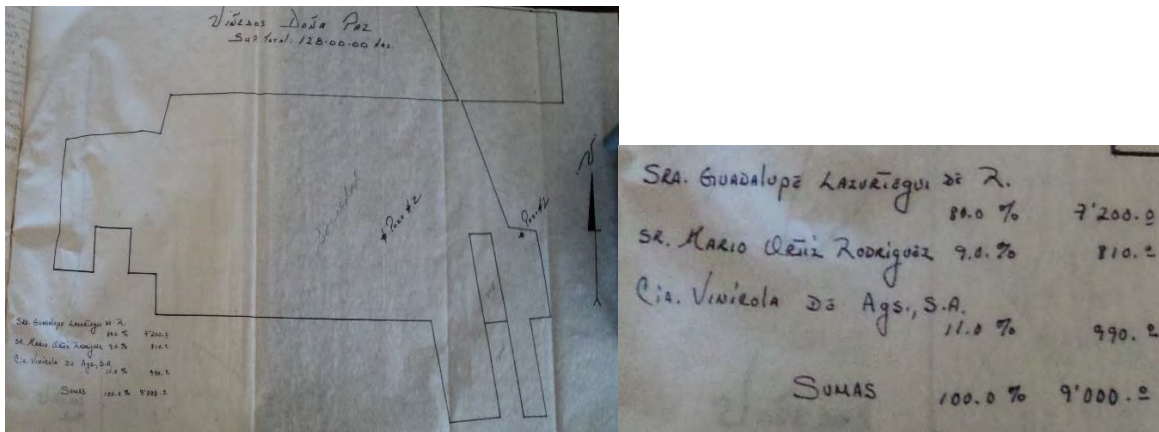 VIÑEDOS DOÑA PAZ
SUP. TOTAL: 128-00-00 Has.
N
* Pozo #2
* Pozo #1
SRA. GUADALUPE LAZURTEGUI DE R.
80.0 % 7'200.0
SR. MARIO ORTIZ RODRIGUEZ 9.0 % 810.0
CIA. VINICOLA DE AGS., S.A.
11.0 % 990.0
SUMAS 100.0 % 9'000.0
SRA. GUADALUPE LAZURTEGUI DE R.
80.0 % 7'200.0
SR. MARIO ORTIZ RODRIGUEZ 9.0. % 810.0
CIA. VINICOLA DE AGS., S.A.
11.0 % 990.0
SUMAS 100.0 % 9'000.0